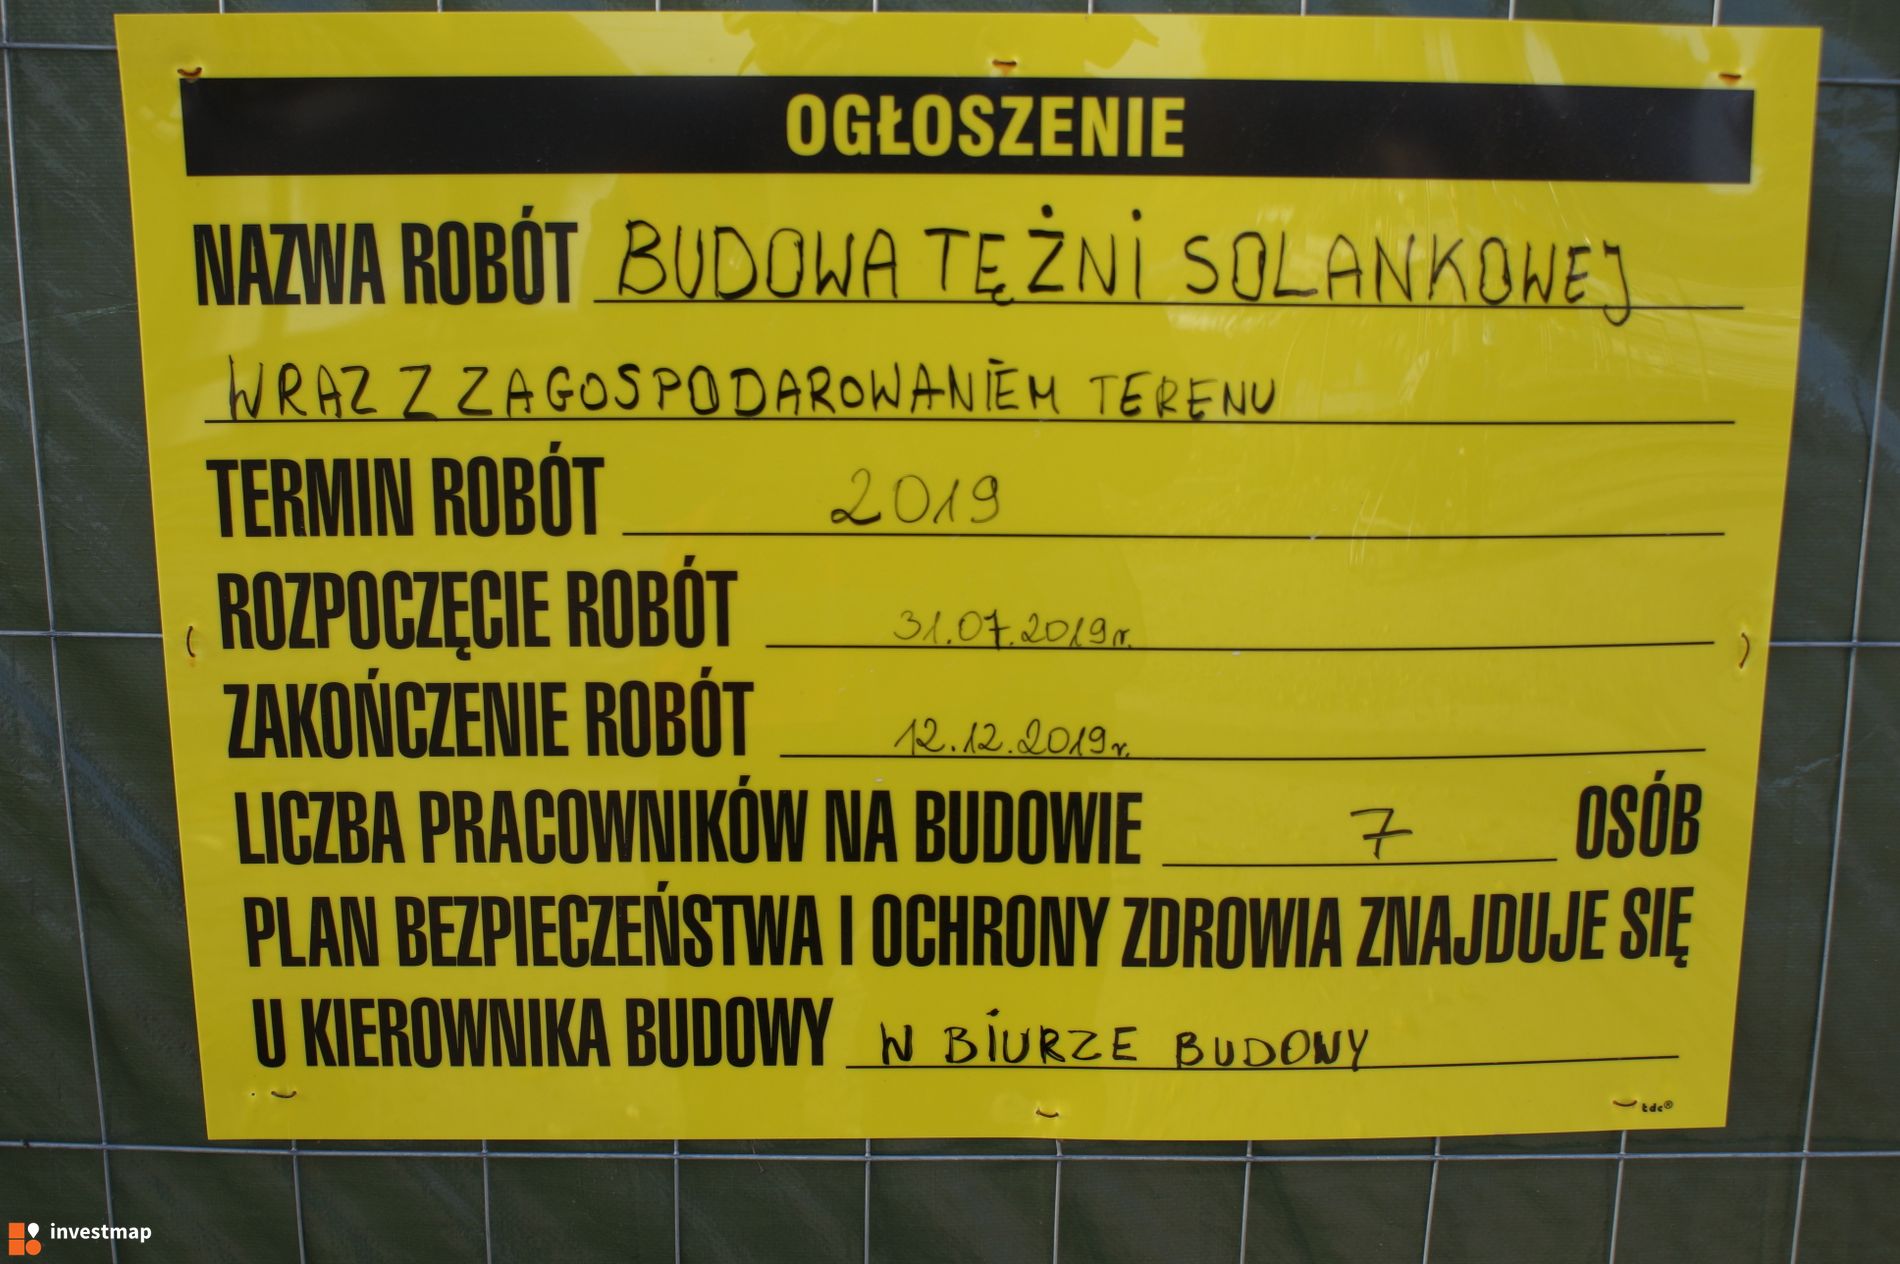 OGŁOSZENIE
NAZWA ROBÓT BUDOWA TĘŻNI SOLANKOWEJ
WRAZ Z ZAGOSPODAROWANIEM TERENU
TERMIN ROBÓT 2019
ROZPOCZĘCIE ROBÓT 31.07.2019r.
ZAKOŃCZENIE ROBÓT 12.12.2019r.
LICZBA PRACOWNIKÓW NA BUDOWIE 7 OSÓB
PLAN BEZPIECZEŃSTWA I OCHRONY ZDROWIA ZNAJDUJE SIĘ
U KIEROWNIKA BUDOWY W BIURZE BUDOWY
tdc®
investmap